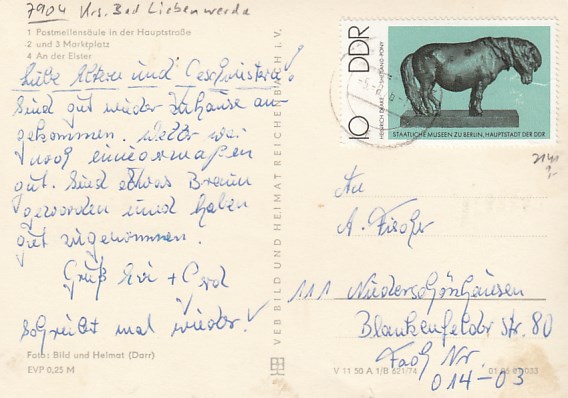 7904 Krs. Bad Liebenwerda
1 Postmeilensäule in der Hauptstraße
2 und 3 Marktplatz
4 An der Elster
Liebe Eltern und Geschwister!
Sind gut wieder zuhause an-
gekommen. Wetter war
noch einigermaßen
gut. Sind etwas Braun
geworden und haben
gut zugenommen.
Gruß Evi + Gerd
Schreibt mal wieder!
Foto: Bild und Heimat (Darr)
EVP 0,25 M
VEB BILD UND HEIMAT REICHENBACH I. V.
DDR
10
HEINRICH DRAKE
SHETLAND-PONY
STAATLICHE MUSEEN ZU BERLIN, HAUPTSTADT DER DDR
An
A. Fischer
111 Niederschönhausen
Blankenfelder Str. 80
Fach Nr.
014-03
V 11 50 A 1/B 621/74